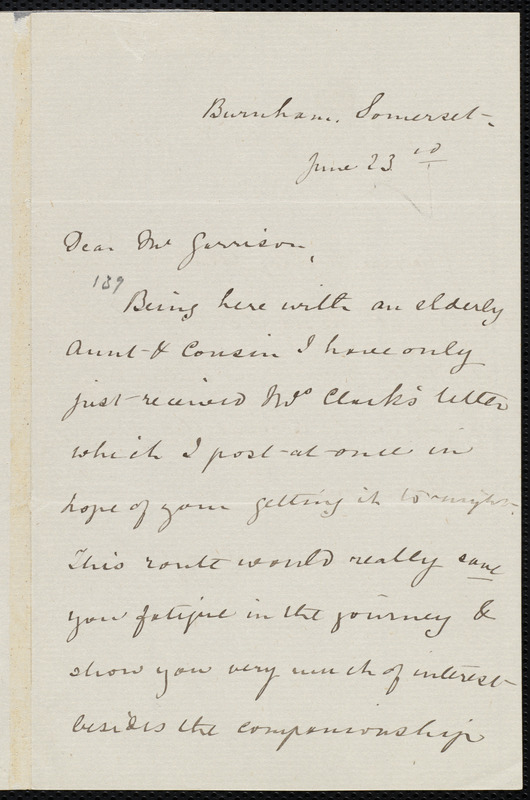 Burnham. Somerset-
June 23rd
Dear Mr Garrison,
139
Being here with an elderly
Aunt & Cousin I have only
just received Mrs Clark's letter
which I post at once in
hope of your getting it to-night.
This route would really save
you fatigue in the journey &
show you very much of interest
besides the companionship